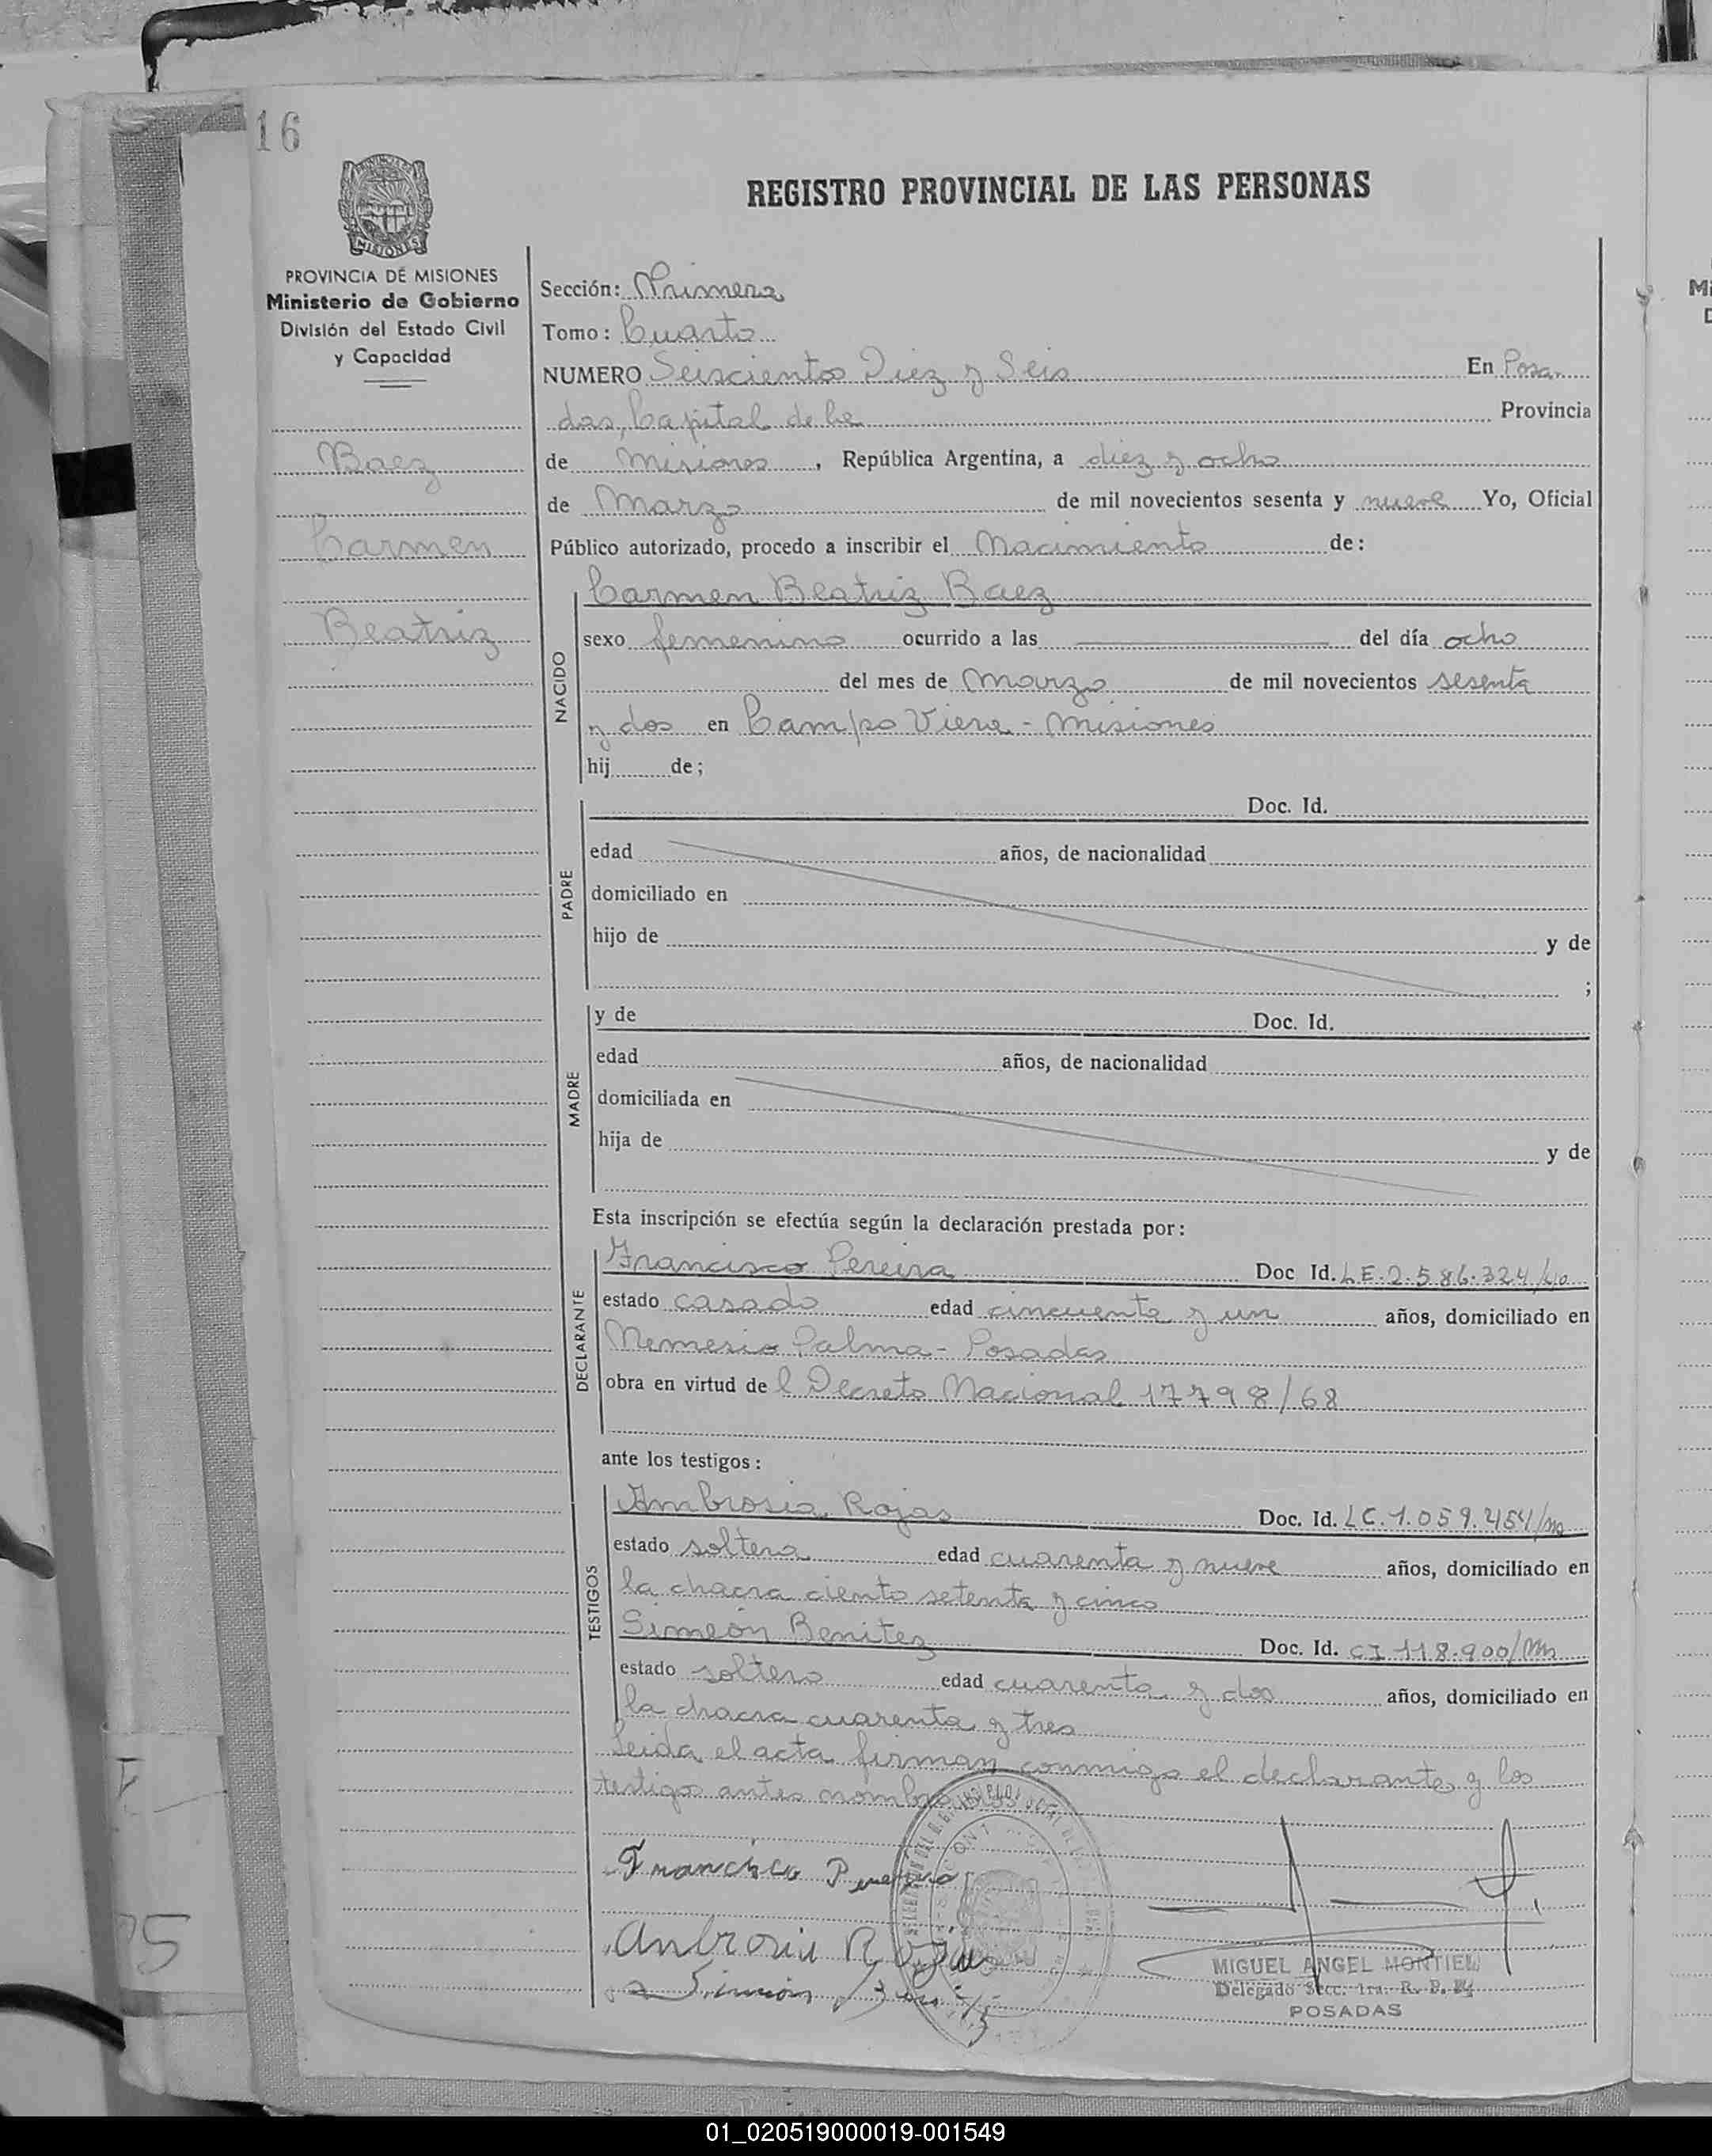 16
MISIONES
PROVINCIA DE MISIONES
Ministerio de Gobierno
División del Estado Civil
y Capacidad
Baez
Carmen
Beatriz
REGISTRO PROVINCIAL DE LAS PERSONAS
Sección: Primera
Tomo: Cuarto
NUMERO Seiscientos Diez y Seis En Posa-
das, Capital de la Provincia
de Misiones, República Argentina, a diez y ocho
de Marzo de mil novecientos sesenta y nueve Yo, Oficial
Público autorizado, procedo a inscribir el Nacimiento de:
Carmen Beatriz Baez
sexo femenino ocurrido a las del día ocho
del mes de Marzo de mil novecientos sesenta
y dos en Campo Viera - Misiones
hij de;
NACIDO
Doc. Id.
edad años, de nacionalidad
domiciliado en
hijo de y de
;
PADRE
y de Doc. Id.
edad años, de nacionalidad
domiciliada en
hija de y de
MADRE
Esta inscripción se efectúa según la declaración prestada por:
Francisco Pereira Doc Id. L.E. 2.586.324/
estado casado edad cincuenta y un años, domiciliado en
Nemesio Palma - Posadas
obra en virtud de l Decreto Nacional 17798/68
DECLARANTE
ante los testigos:
Ambrosia Rojas Doc. Id. LC.1.059.454/
estado soltera edad cuarenta y nueve años, domiciliado en
la chacra ciento setenta y cinco
Simeón Benitez Doc. Id. CI 118.900/
estado soltero edad cuarenta y dos años, domiciliado en
la chacra cuarenta y tres
TESTIGOS
Leida el acta firman conmigo el declarante y los
testigos antes nombrados
Francisco Pereira
Ambrosia Rojas
Simeón
MIGUEL ANGEL MONTIEL
Delegado Secc. 1ra. R. P.
POSADAS
01_020519000019-001549